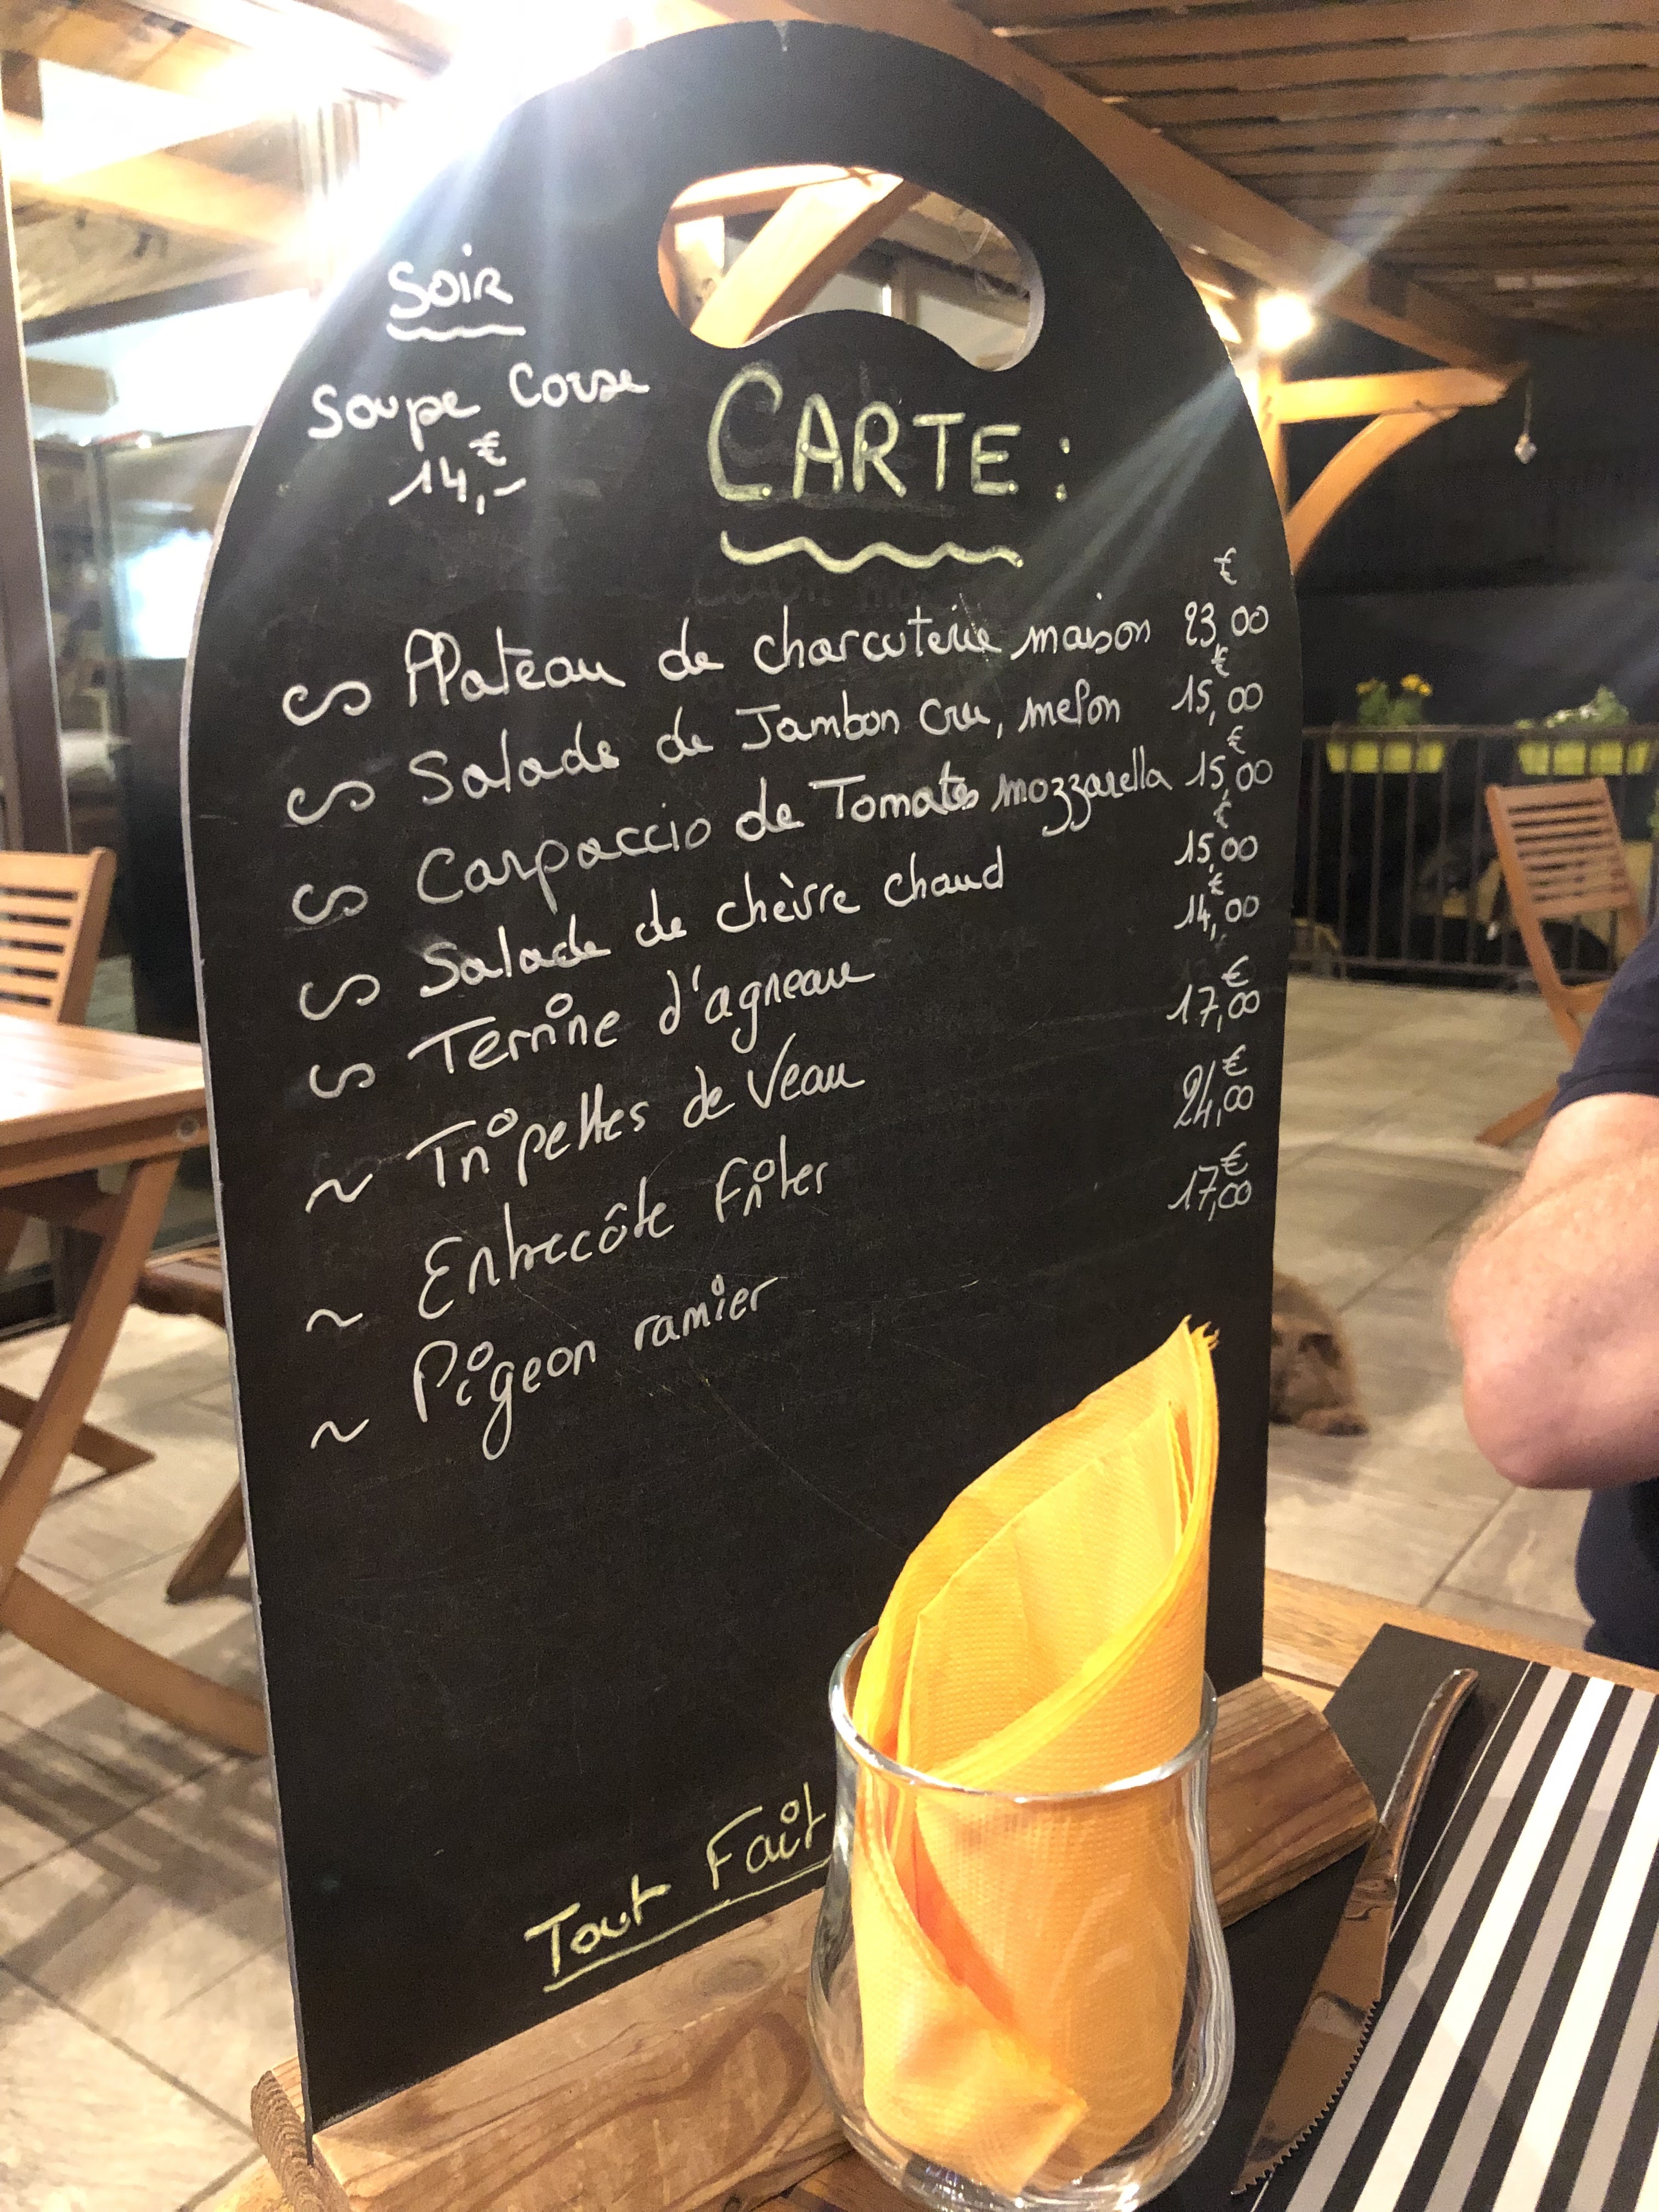 SOIR
Soupe Corse
14,-€
CARTE :
Plateau de charcuterie maison 23,00 €
Salade de Jambon Cru, melon 15,00 €
Carpaccio de Tomates mozzarella 15,00 €
Salade de chèvre chaud 15,00 €
Terrine d'agneau 14,00 €
Tripettes de Veau 17,00 €
Entrecôte frites 24,00 €
Pigeon ramier 17,00 €
Tout Fait